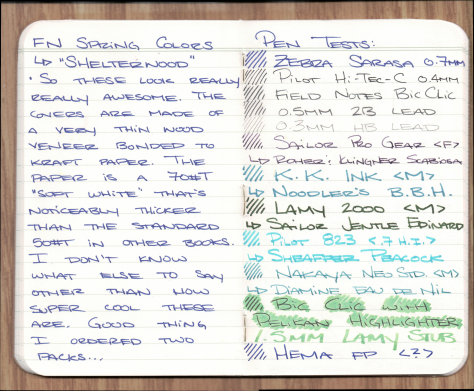 FN Spring Colors
↳ "Shelterwood"
· So these look really
really awesome. The
covers are made of
a very thin wood
veneer bonded to
kraft paper. The
paper is a 70#T
"soft white" that's
noticeably thicker
than the standard
50#T in other books.
I don't know
what else to say
other than how
super cool these
are. Good thing
I ordered two
packs...
Pen Tests:
Zebra Sarasa 0.7mm
Pilot Hi-Tec-C 0.4mm
Field Notes Bic Clic
0.5mm 2B lead
0.3mm HB lead
Sailor Pro Gear <F>
↳ Rohrer & Klingner Scabiosa
K.K. Ink <M>
↳ Noodler's B.B.H.
Lamy 2000 <M>
↳ Sailor Jentle Epinard
Pilot 823 <.7 H.I.>
↳ Sheaffer Peacock
Nakaya Neo Std. <M>
↳ Diamine Eau de Nil
Bic Clic with
Pelikan Highlighter
1.5mm Lamy Stub
Hema FP <?>